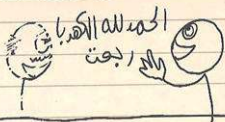 الحمد لله الكهربا
رجعت